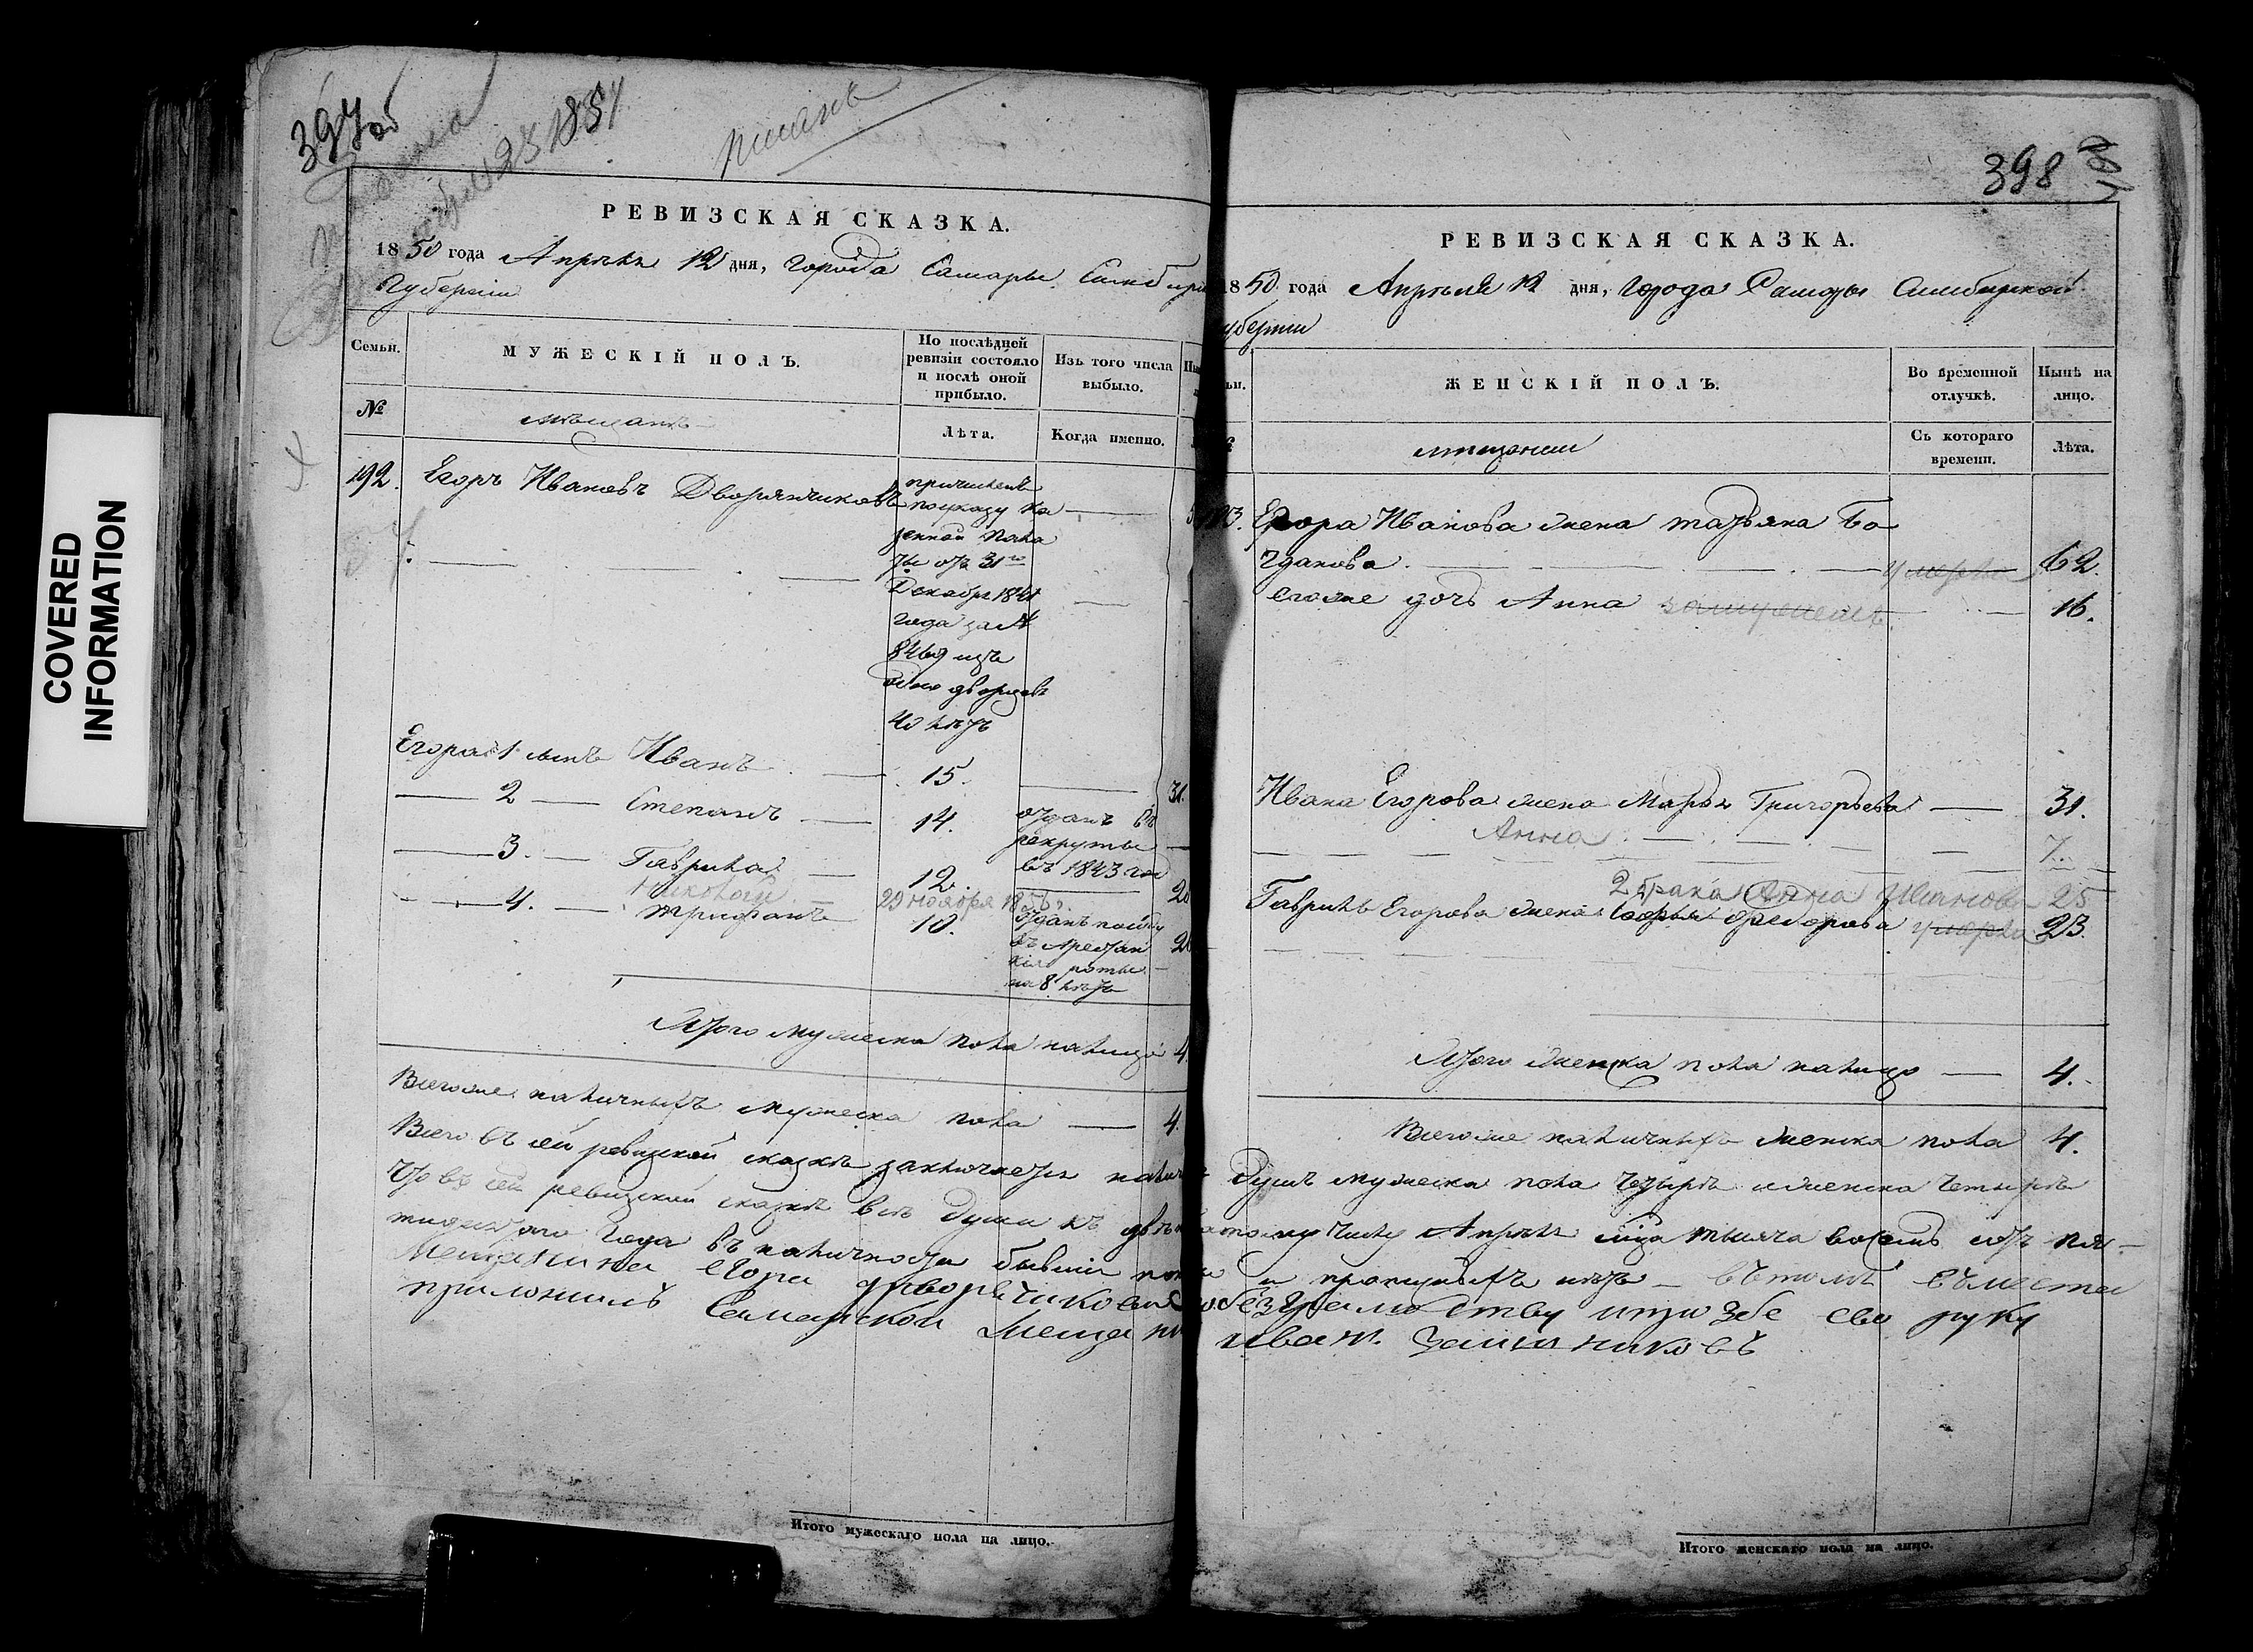 COVERED
INFORMATION
397 об
1851
писанъ
РЕВИЗСКАЯ СКАЗКА.
1850 года Апрѣля 12 дня, города Самары Симбир
Губерніи
Семьи.
МУЖЕСКІЙ ПОЛЪ.
По послѣдней ревизіи состояло и послѣ оной прибыло.
Изъ того числа выбыло.
№
мѣщанъ
Лѣта.
Когда именно.
192. Егоръ Ивановъ Дворянчиковъ
причисленъ
по указу Ка
зенной Пала
ты отъ 31го
Декабря 1841
года за №
8469 изъ
одно дворцовъ
40 лѣтъ
Егора 1 сынъ Иванъ 15. 31.
2 Степанъ 14.
отданъ въ
рекруты
въ 1843 год
3. Гаврила 12.
Николай 29 ноября
4. Трифанъ 10.
отданъ
въ Арестан
кія роты
на 8 лѣтъ
Итого мужеска пола налицо 4.
Всего же наличныхъ мужеска пола 4.
398
РЕВИЗСКАЯ СКАЗКА.
1850 года Апрѣля 12 дня, Города Самары Симбирской
уберніи
ЖЕНСКІЙ ПОЛЪ.
Во временной отлучкѣ.
Нынѣ на лицо.
мещански
Съ котораго времени.
Лѣта.
Егора Иванова жена татьяна Бо
гданова. умерла 62.
Егоже дочь Анна замужемъ 16.
Ивана Егорова жена Марья Григорьева 31.
Анна 7.
2 брака Анна 25
Гаврилы Егорова жена Софья Федорова умерла 23.
Итого женска пола налицо 4.
Всего же наличныхъ женска пола 4.
Всего въ сей ревизской сказкѣ заключается налич душъ мужеска пола четыре и женска четыре
Что въ сей ревизской сказкѣ всѣ души къ двѣнатцатому числу Апрѣля мца тысяча восемь сотъ пя-
тидесятого года въ наличности бывшіи и пропущенныхъ нѣтъ - въ томъ въместа
Мещанина егора дворянчикова безграмотству ипрозбе его руку
приложилъ Самарской мещанин иван
Итого мужескаго пола на лицо.
Итого женскаго пола на лицо.